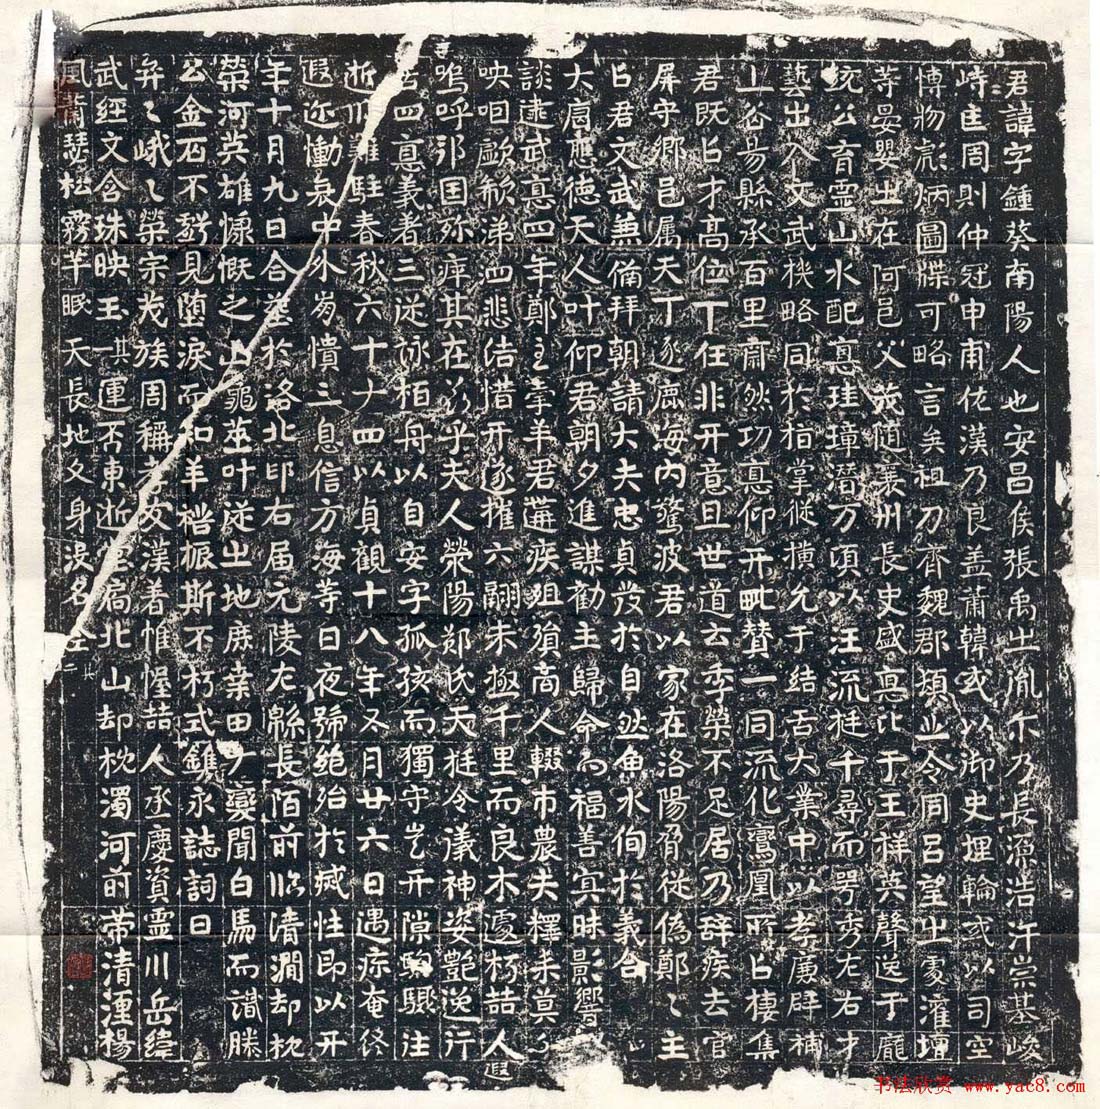 君諱字鍾葵南陽人也安昌侯張禹之胤尓乃長源浩汗崇基峻
峙在周則仲冠申甫佐漢乃良盖蕭韓或以御史埋輪或以司空
博物彪炳圖牒可略言矣祖刀齊魏郡頓丘令同呂望之處灌壇
等晏嬰之在阿邑父義随襄州長史盛惪比于王祥英聲送于龐
統公育霊山水配惪珪璋潜万頃以汪流挺千尋而咢秀左右才
藝出入文武機略同於指掌縱横允于結舌大業中以孝廉辟補
上谷易縣承百里肅然功惪仰开毗賛一同流化鸞鳳所㠯棲集
君既㠯才高位下任非开意且世道云季榮不足居乃辞疾去官
屏守鄉邑属天丁逐鹿海内驚波君以家在洛陽脅従偽鄭〻主
㠯君文武兼俻拜朝請大夫忠貞發於自然魚水侚於義合
大唐應徳天人叶仰君朝夕進謀勸主歸命而福善㝠昧影響
談達武惪四年鄭主牽羊君遘疾殂殞商人輟市農夫釋耒莫不
咉咽歔欷涕四悲结惜开遂摧六翮未極千里而良木遽朽喆人遐
嗚呼邦国殄瘁其在兹乎夫人滎陽郑氏天挺令儀神姿艷逸行
苦四惪義者三従詠栢舟以自安字孤孩而獨守岂开隙駒驟注
逝川難駐春秋六十十四以貞觀十八年五月廿六日遇瘵奄终
遐迩慟哀中外崩憤三息信方海等日夜號绝殆於㓕性即以开
年十月九日合塟於洛北邙右届元陵左緜長陌前临清澗却枕
榮河英雄慷慨之山龜莁叶従之地庶葉田夕變聞白馬而識滕
公金石不虧見堕淚而知羊祜振斯不朽式鐫永誌詞曰
弈〻峨〻榮宗茂族周稱孝友漢著惟幄喆人丞慶資霊川岳緯
武經文含珠映玉其運否東逝堂扃北山却枕濁河前带清湹楊
風蕭瑟松霧芊眠天長地久身没名全其二
书法欣赏 www.yac8.com